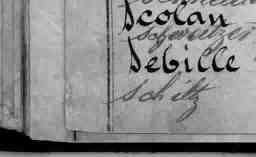 Scolan
Schweitzer
Sebille
Schitz